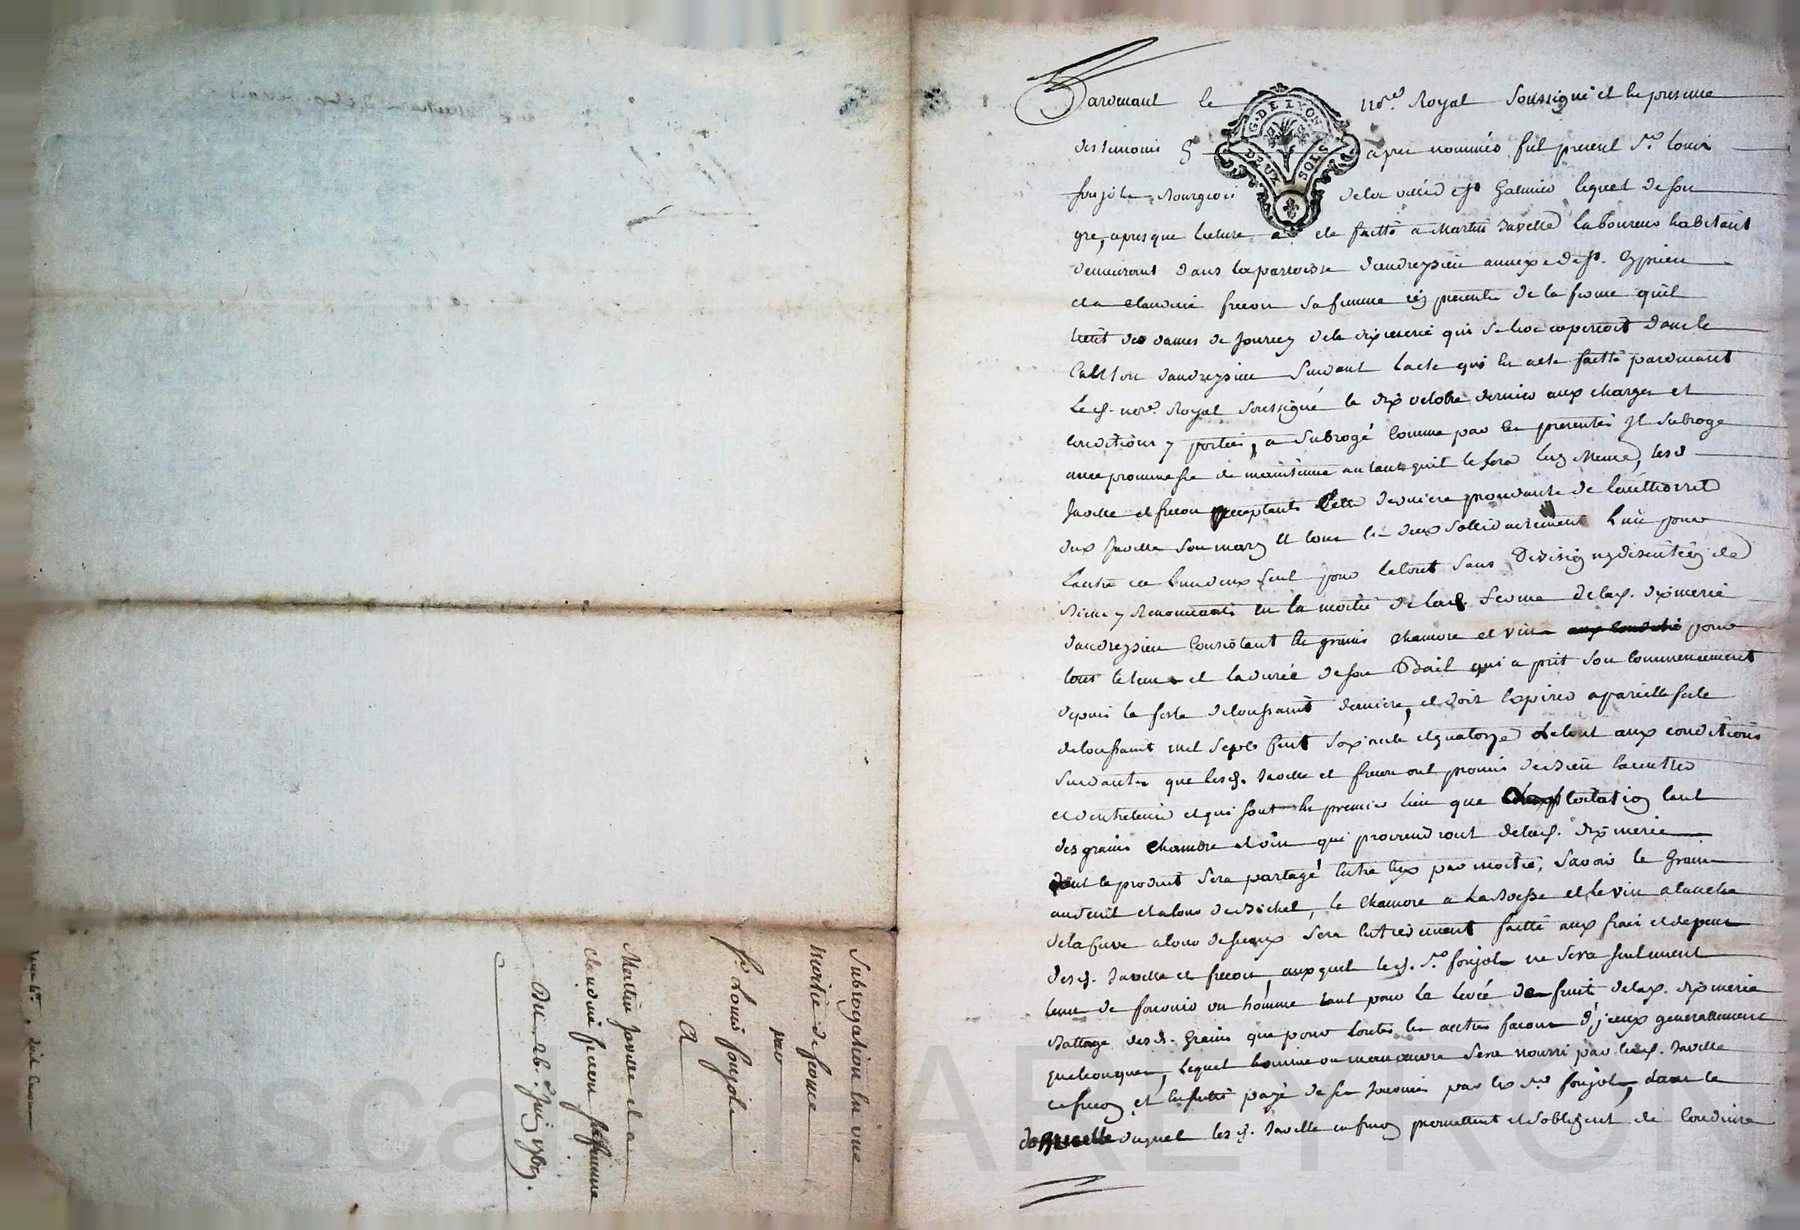 Pardevant le no.re Royal Soussigné et En presence
des temoins cy apres nommés fut present Sr. Louis
foujols Bourgeois de la ville de st Galmier lequel de son
gré, apres que lecture a été faitte a Martin Javelle Laboureur habitant
demeurant dans la parroisse d'andrezieu annexe de st. Cyprien
et a Claudine frecon sa femme icy presents de la ferme qu'il
tient des dames de Jourcey de la dixmerie qui se leve et perçoit dans le
Canton dandrezieu Suivant l'acte qui En a été faitte pardevant
le d. nore. Royal Soussigné le dix octobre dernier aux charges et
conditions y portées, a Subrogé comme par les presentes Il subroge
avec promesse de maintenue autant qu'il le sera luy Meme, lesd
Javelle et frecon acceptants Cette derniere procedante de l'authorité
dud Javelle son mary Et tous les deux sollidairement l'un pour
l'autre et l'un d'eux seul pour le tout sans Division ny discution de
Biens y Renonceants En la moitié de lad. ferme de lad. dixmerie
dandrezieu Consistant En grains chanvre et vin pour
tout le tems et la durée de son Bail qui a prit son commencement
depuis la feste de toussaint derniere, et doit Expirer a pareille feste
de toussaint mil sept Cent soixante et quatorze le tout aux conditions
Suivantes que lesd. Javelle et frecon ont promis de Bien
et d'entretenir et qui sont En premier lieu que L'exploitation tant
des grains chanvre et vin qui proviendront de lad. dixmerie
dont le produit sera partagé Entre Eux par moitié, Savoir le Grain
de la Cuve sera Entierement faitte aux frais et depens
desd. Javelle et frecon, auxquels led. Sr. foujols ne sera seulement
tenu de fournir un homme tant pour la levée de fruits de lad. dixmerie
Battage desd. Grains que pour toutes les autres facons d'jceux generallement
quelconques, lequel homme ou manœuvre sera nourri par lesd. Javelle
et frecon et Ensuitte payé de sa journée par led. Sr foujols, dans le
duquel lesd. Javelle et frecon promettent et s'obligent de Conduire
Subrogation En une
moitié de ferme
par
Sr. Louis foujols
A
Martin Javelle et a
Claudine frecon sa femme
Du 26. Juin 1769.
G. DE LYON
DEUX SOLS
pascal CHAREYRON